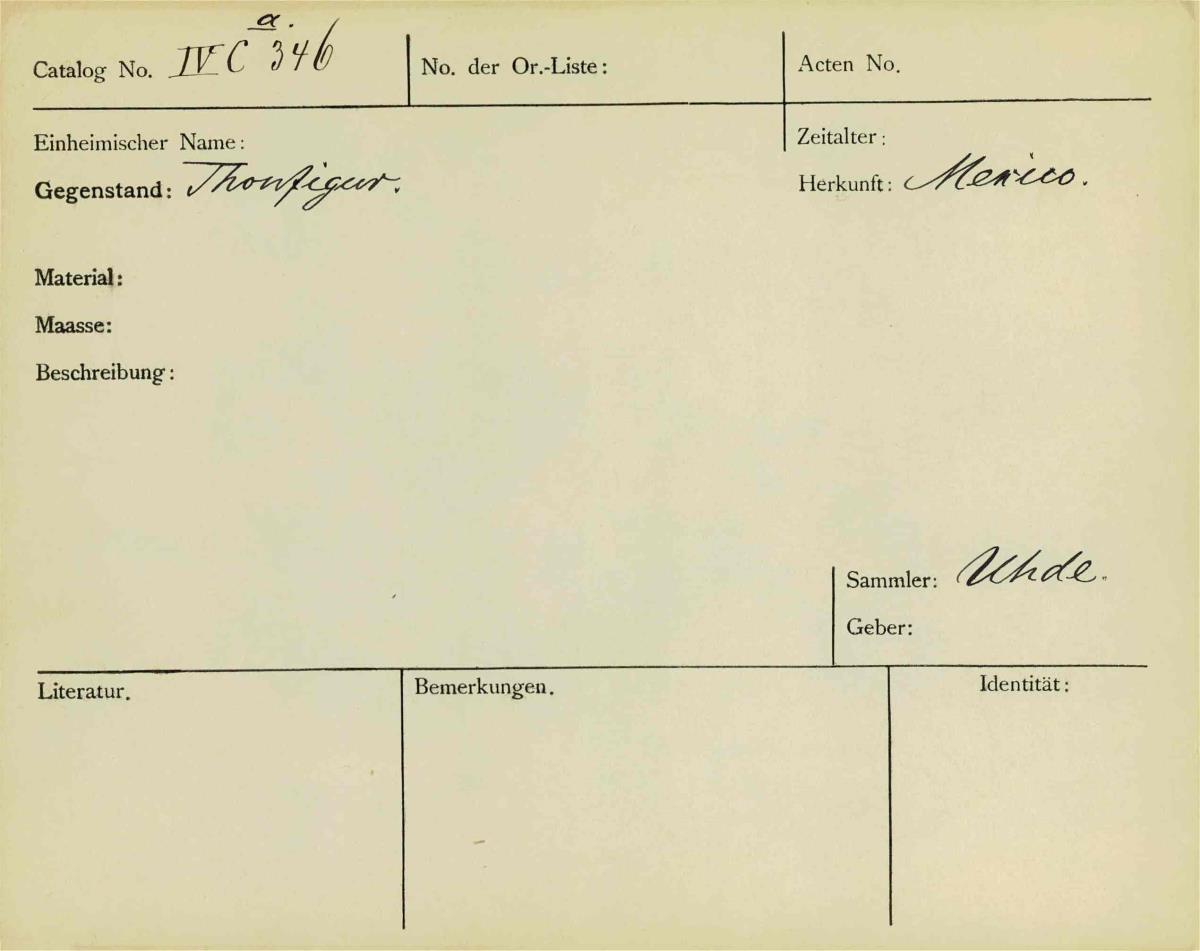 Catalog No. IV C a. 346
No. der Or.-Liste:
Acten No.
Einheimischer Name:
Zeitalter:
Gegenstand: Thonfigur.
Herkunft: Mexico.
Material:
Maasse:
Beschreibung:
Sammler: Uhde.
Geber:
Literatur.
Bemerkungen.
Identität: